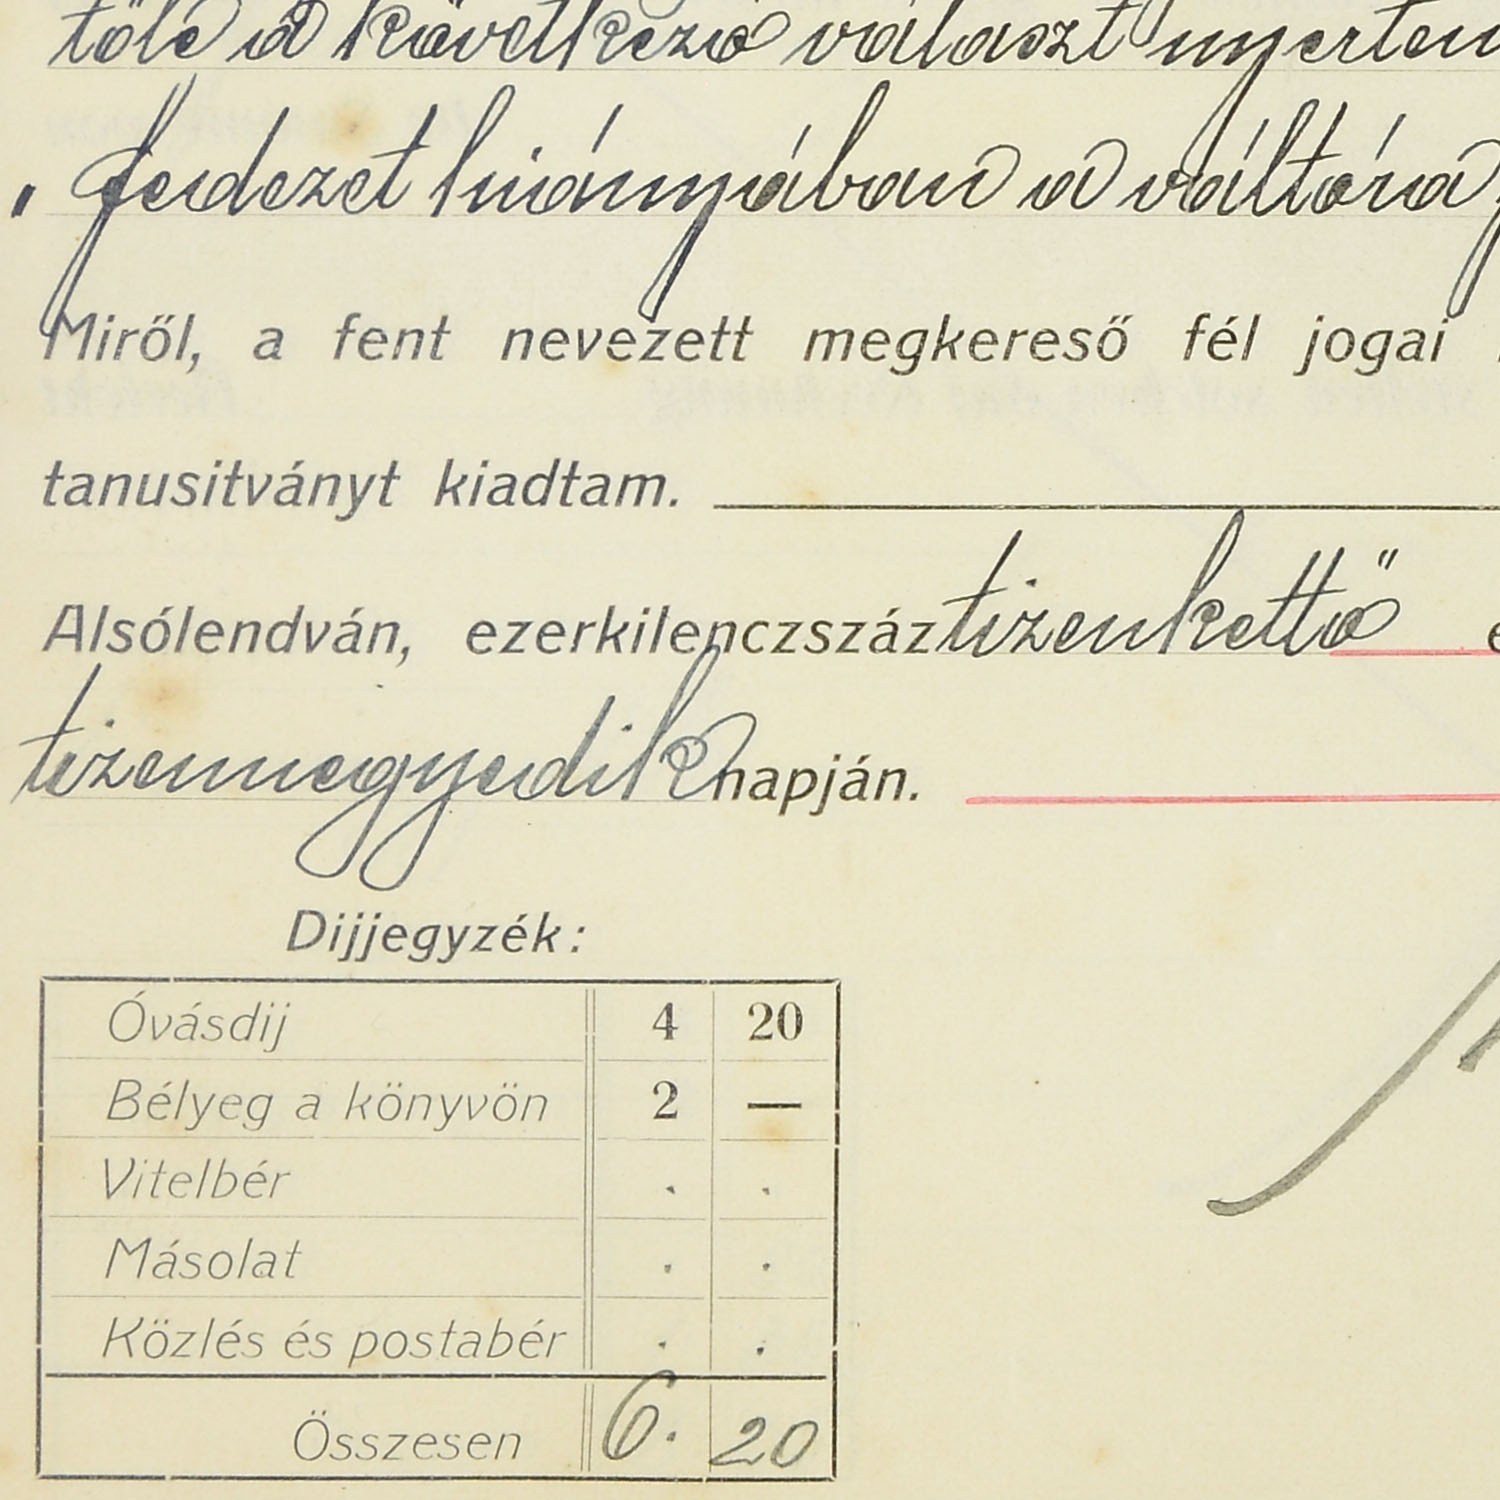 tőle a következő választ nyertem
„fedezet hiányában a váltóra
Miről, a fent nevezett megkereső fél jogai
tanusitványt kiadtam.
Alsólendván, ezerkilenczszáztizenkettő
tizennegyedik napján.
Dijjegyzék:
Óvásdij 4 20
Bélyeg a könyvön 2 —
Vitelbér . .
Másolat . .
Közlés és postabér . .
Összesen 6. 20